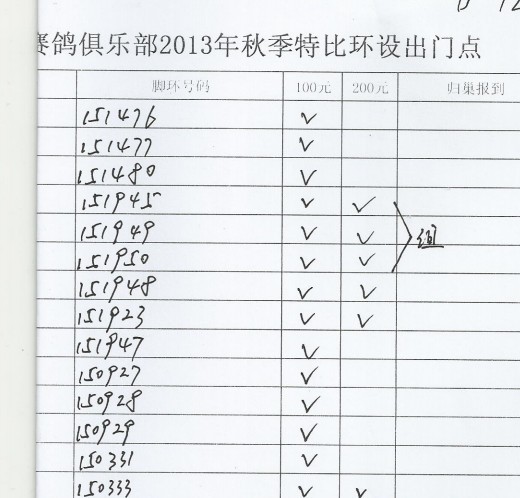 赛鸽俱乐部2013年秋季特比环设出门点
脚环号码 100元 200元 归巢报到
151476 ✓
151477 ✓
151480 ✓
151945 ✓ ✓
151949 ✓ ✓
151950 ✓ ✓
151948 ✓ ✓
151923 ✓ ✓
151947 ✓
150927 ✓
150928 ✓
150929 ✓
150331 ✓
150333 ✓ ✓